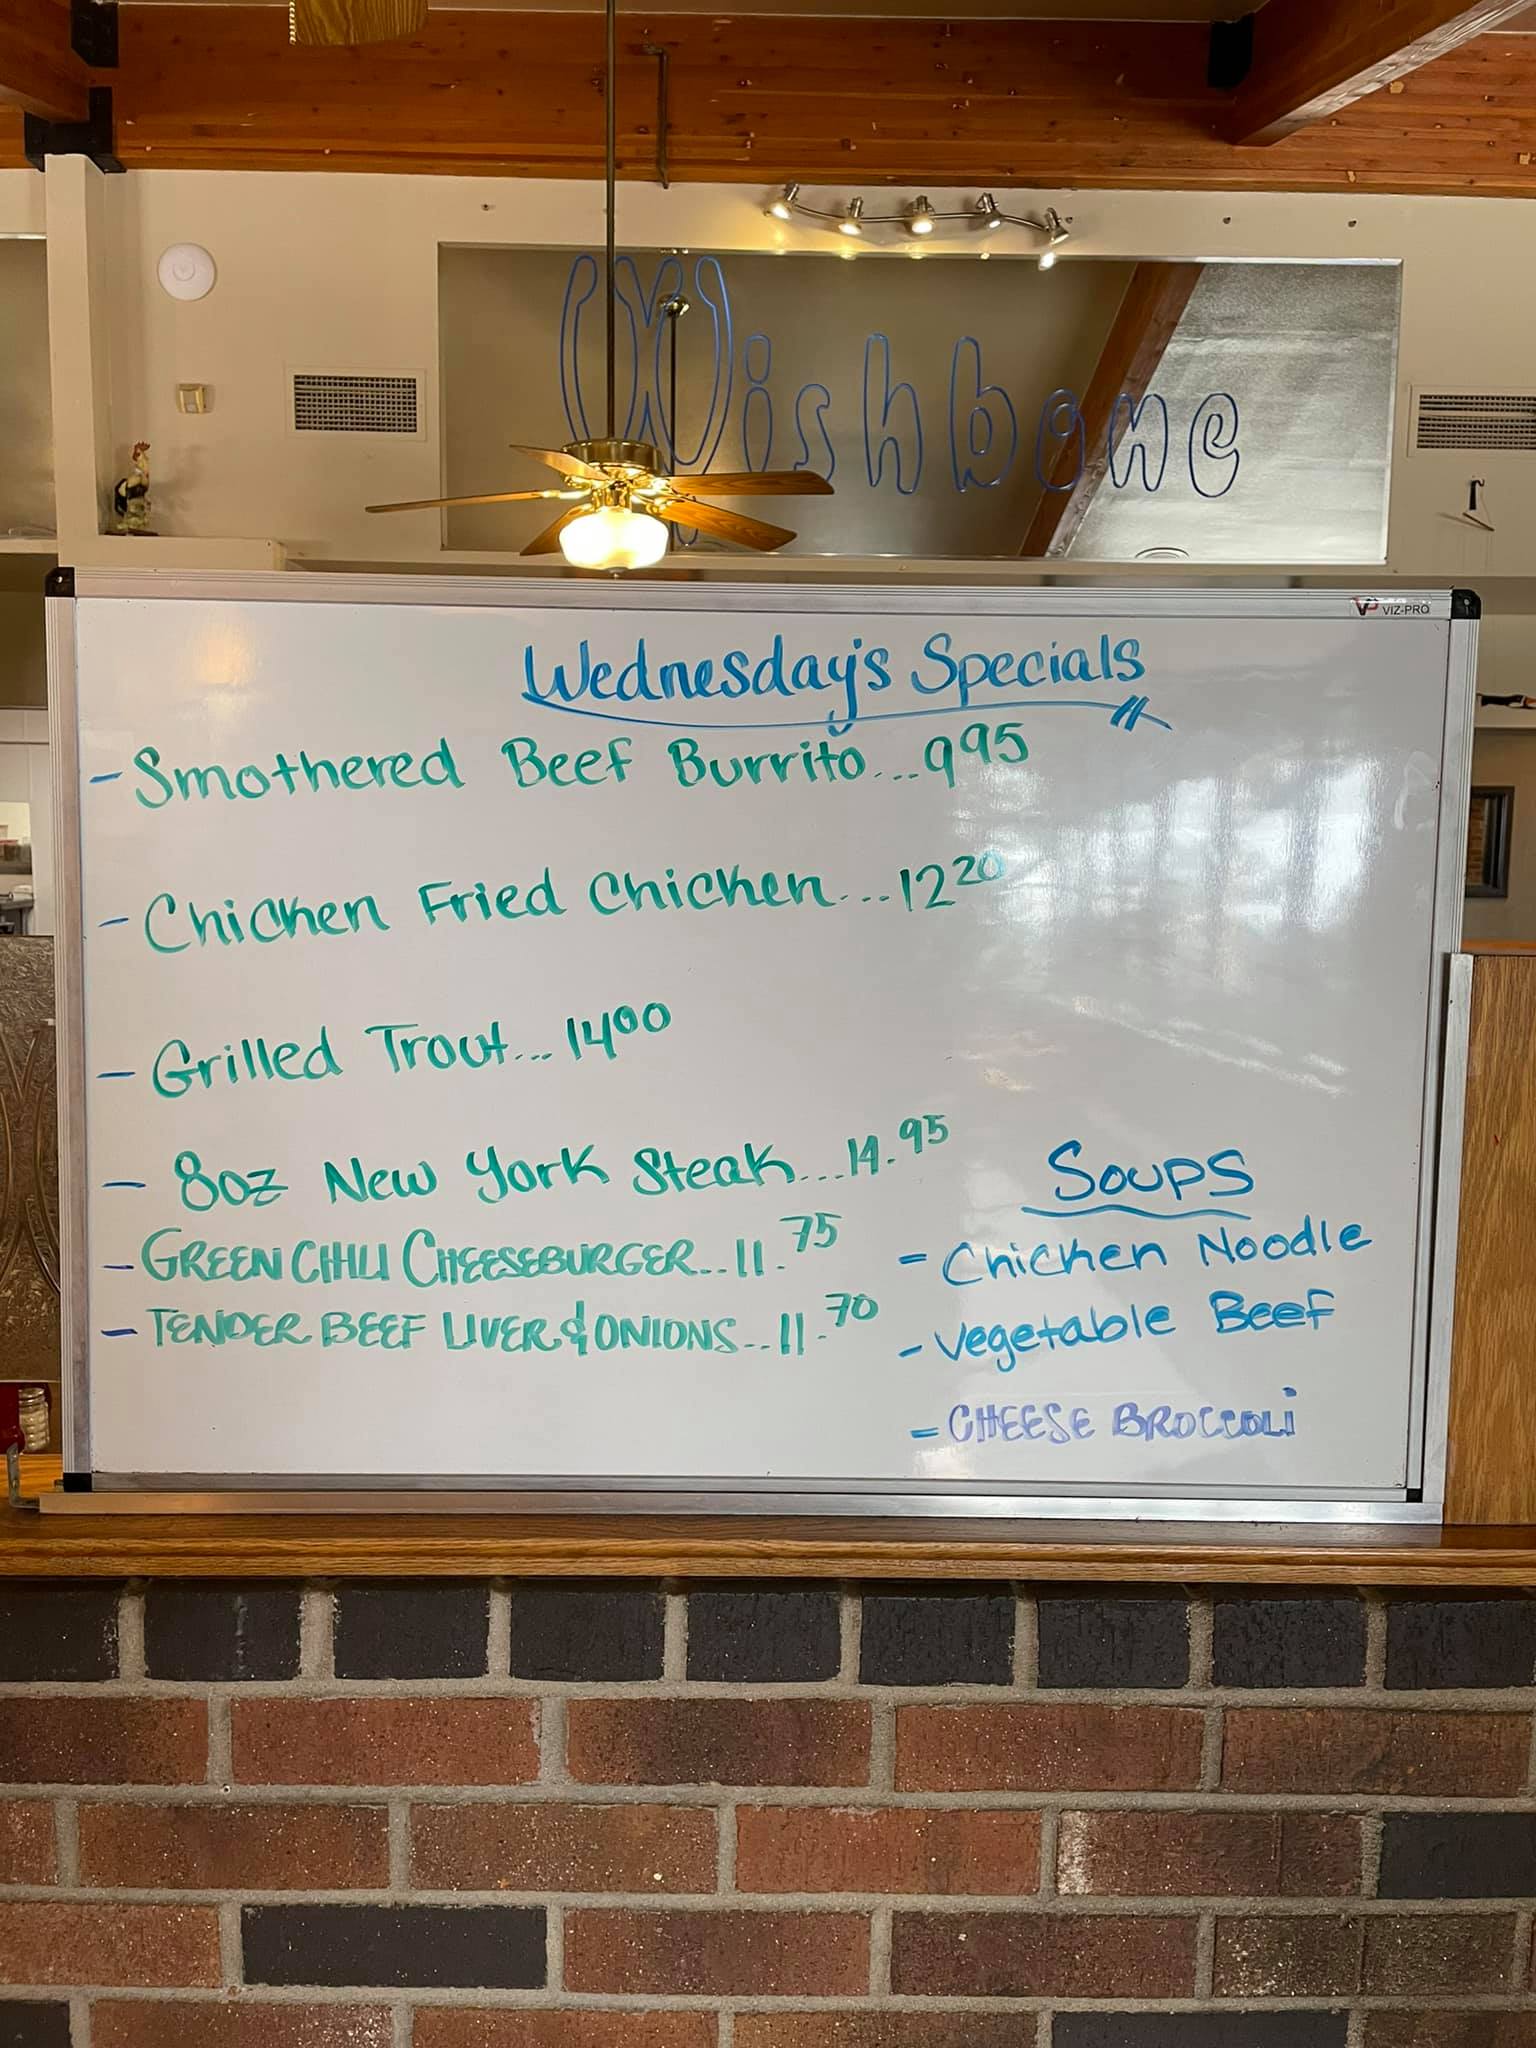 Wishbone
VIZ-PRO
Wednesday's Specials
- Smothered Beef Burrito...9 95
- Chicken Fried Chicken...12 20
- Grilled Trout...14 00
- 8oz New York Steak...14.95
- GREEN CHILI CHEESEBURGER...11.75
- TENDER BEEF LIVER & ONIONS...11.70
Soups
- Chicken Noodle
- Vegetable Beef
- CHEESE BROCCOLi